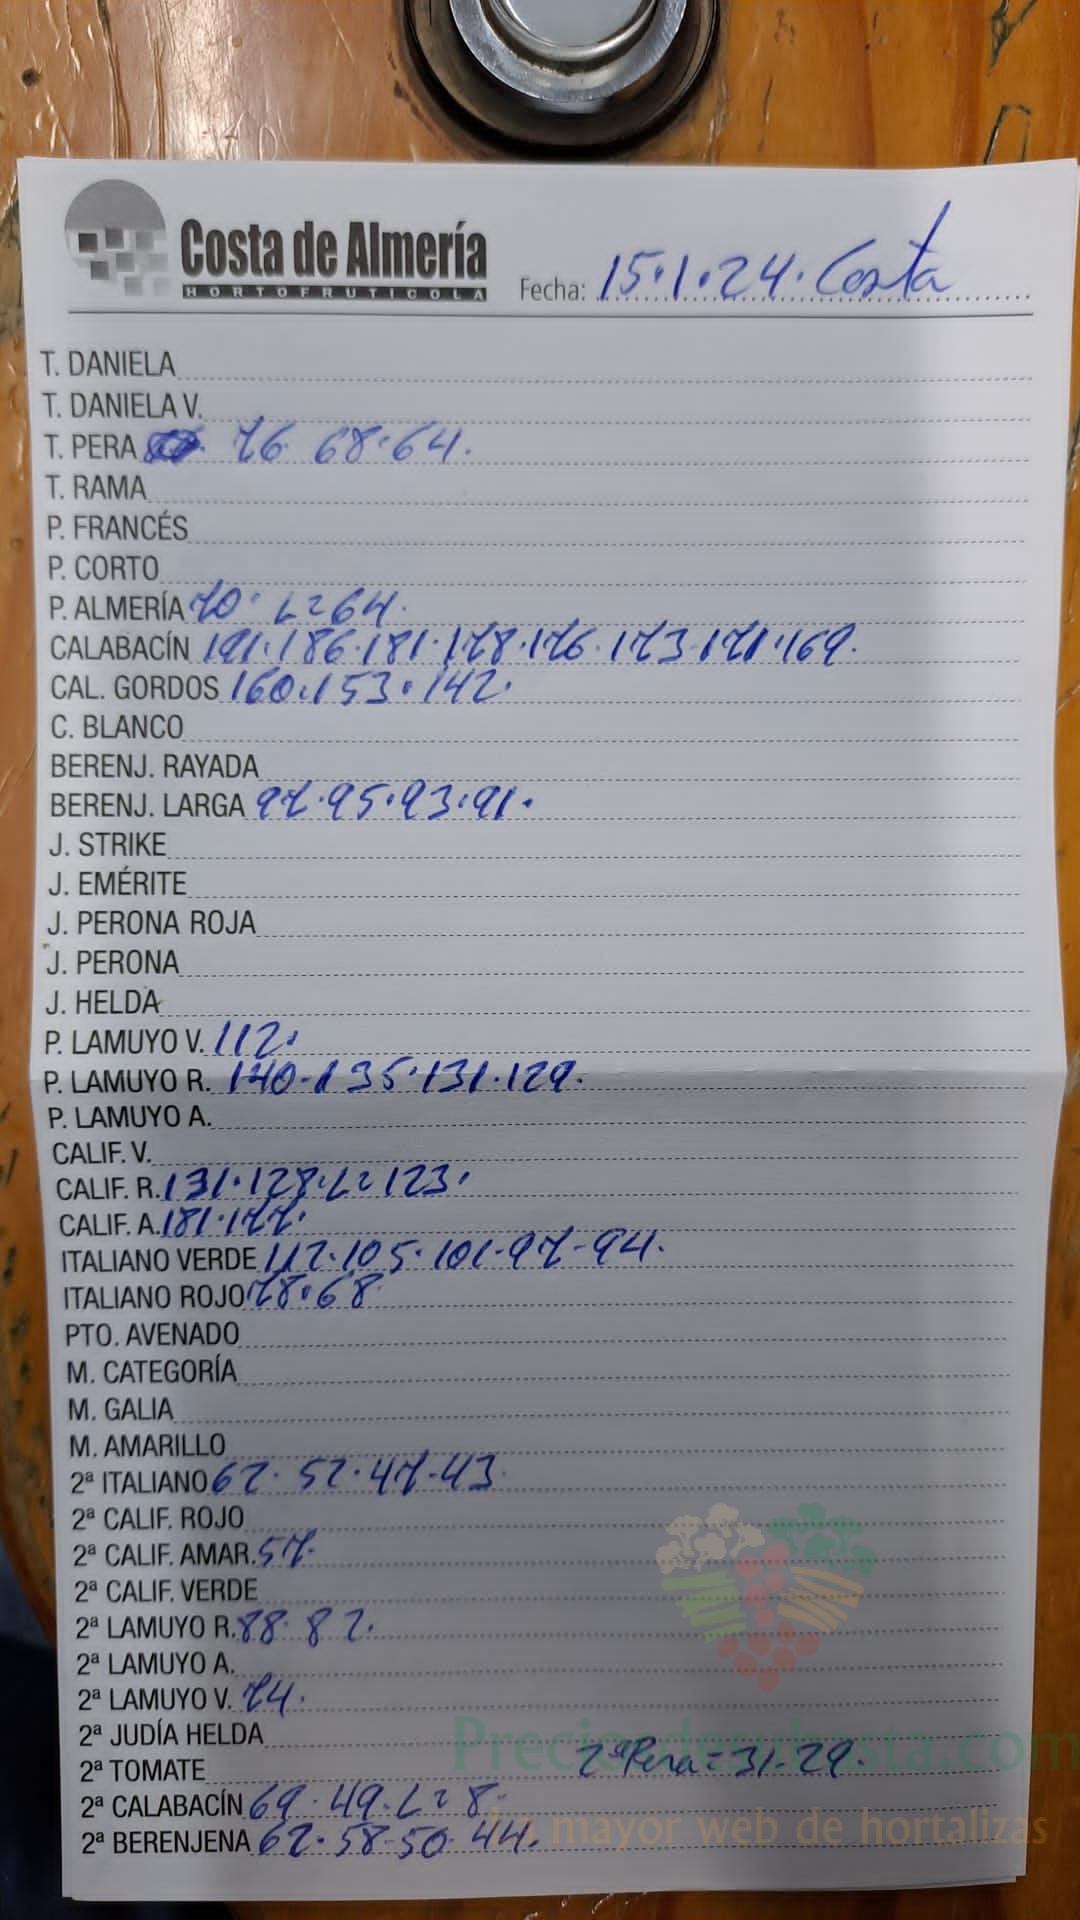 Costa de Almería
HORTOFRUTICOLA
Fecha: 15.1.24. Costa
T. DANIELA
T. DANIELA V.
T. PERA 76 68.64.
T. RAMA
P. FRANCÉS
P. CORTO
P. ALMERÍA 70. L=64.
CALABACÍN 191.186.181.178.176.173.171.169.
CAL. GORDOS 160.153.142.
C. BLANCO
BERENJ. RAYADA
BERENJ. LARGA 97.95.93.91.
J. STRIKE
J. EMÉRITE
J. PERONA ROJA
J. PERONA
J. HELDA
P. LAMUYO V. 112.
P. LAMUYO R. 140.135.131.129.
P. LAMUYO A.
CALIF. V.
CALIF. R. 131.128.L=123.
CALIF. A. 181.177.
ITALIANO VERDE 112.105.101.97-94.
ITALIANO ROJO 78.68
PTO. AVENADO
M. CATEGORÍA
M. GALIA
M. AMARILLO
2ª ITALIANO 62. 52.47-43
2ª CALIF. ROJO
2ª CALIF. AMAR. 57.
2ª CALIF. VERDE
2ª LAMUYO R. 88. 82.
2ª LAMUYO A.
2ª LAMUYO V. 74.
2ª JUDÍA HELDA
Preciosdesubasta.com
2ª TOMATE 2ª Pera = 31-29.
2ª CALABACÍN 69.49.L=8.
La mayor web de hortalizas
2ª BERENJENA 62.58-50.44.